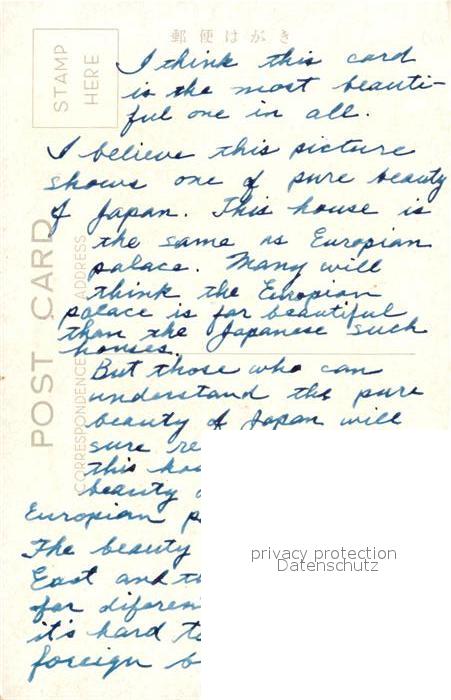 郵便はがき
STAMP HERE
POST CARD
CORRESPONDENCE
ADDRESS
I think this card
is the most beauti-
ful one in all.
I believe this picture
shows one of pure beauty
of Japan. This house is
the same as Europian
palace. Many will
think the Europian
palace is far beautiful
than the Japanese such
houses.
But those who can
understand the pure
beauty of Japan will
sure re
this
beauty
Europian p
The beauty
East and th
far diferen
it's hard to
foreign b
privacy protection
Datenschutz